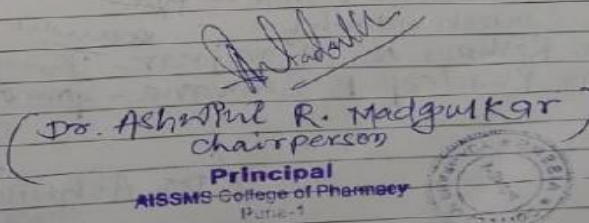 (Dr. Ashwini R. Madgulkar)
Chairperson
Principal
AISSMS College of Pharmacy
Pune-1